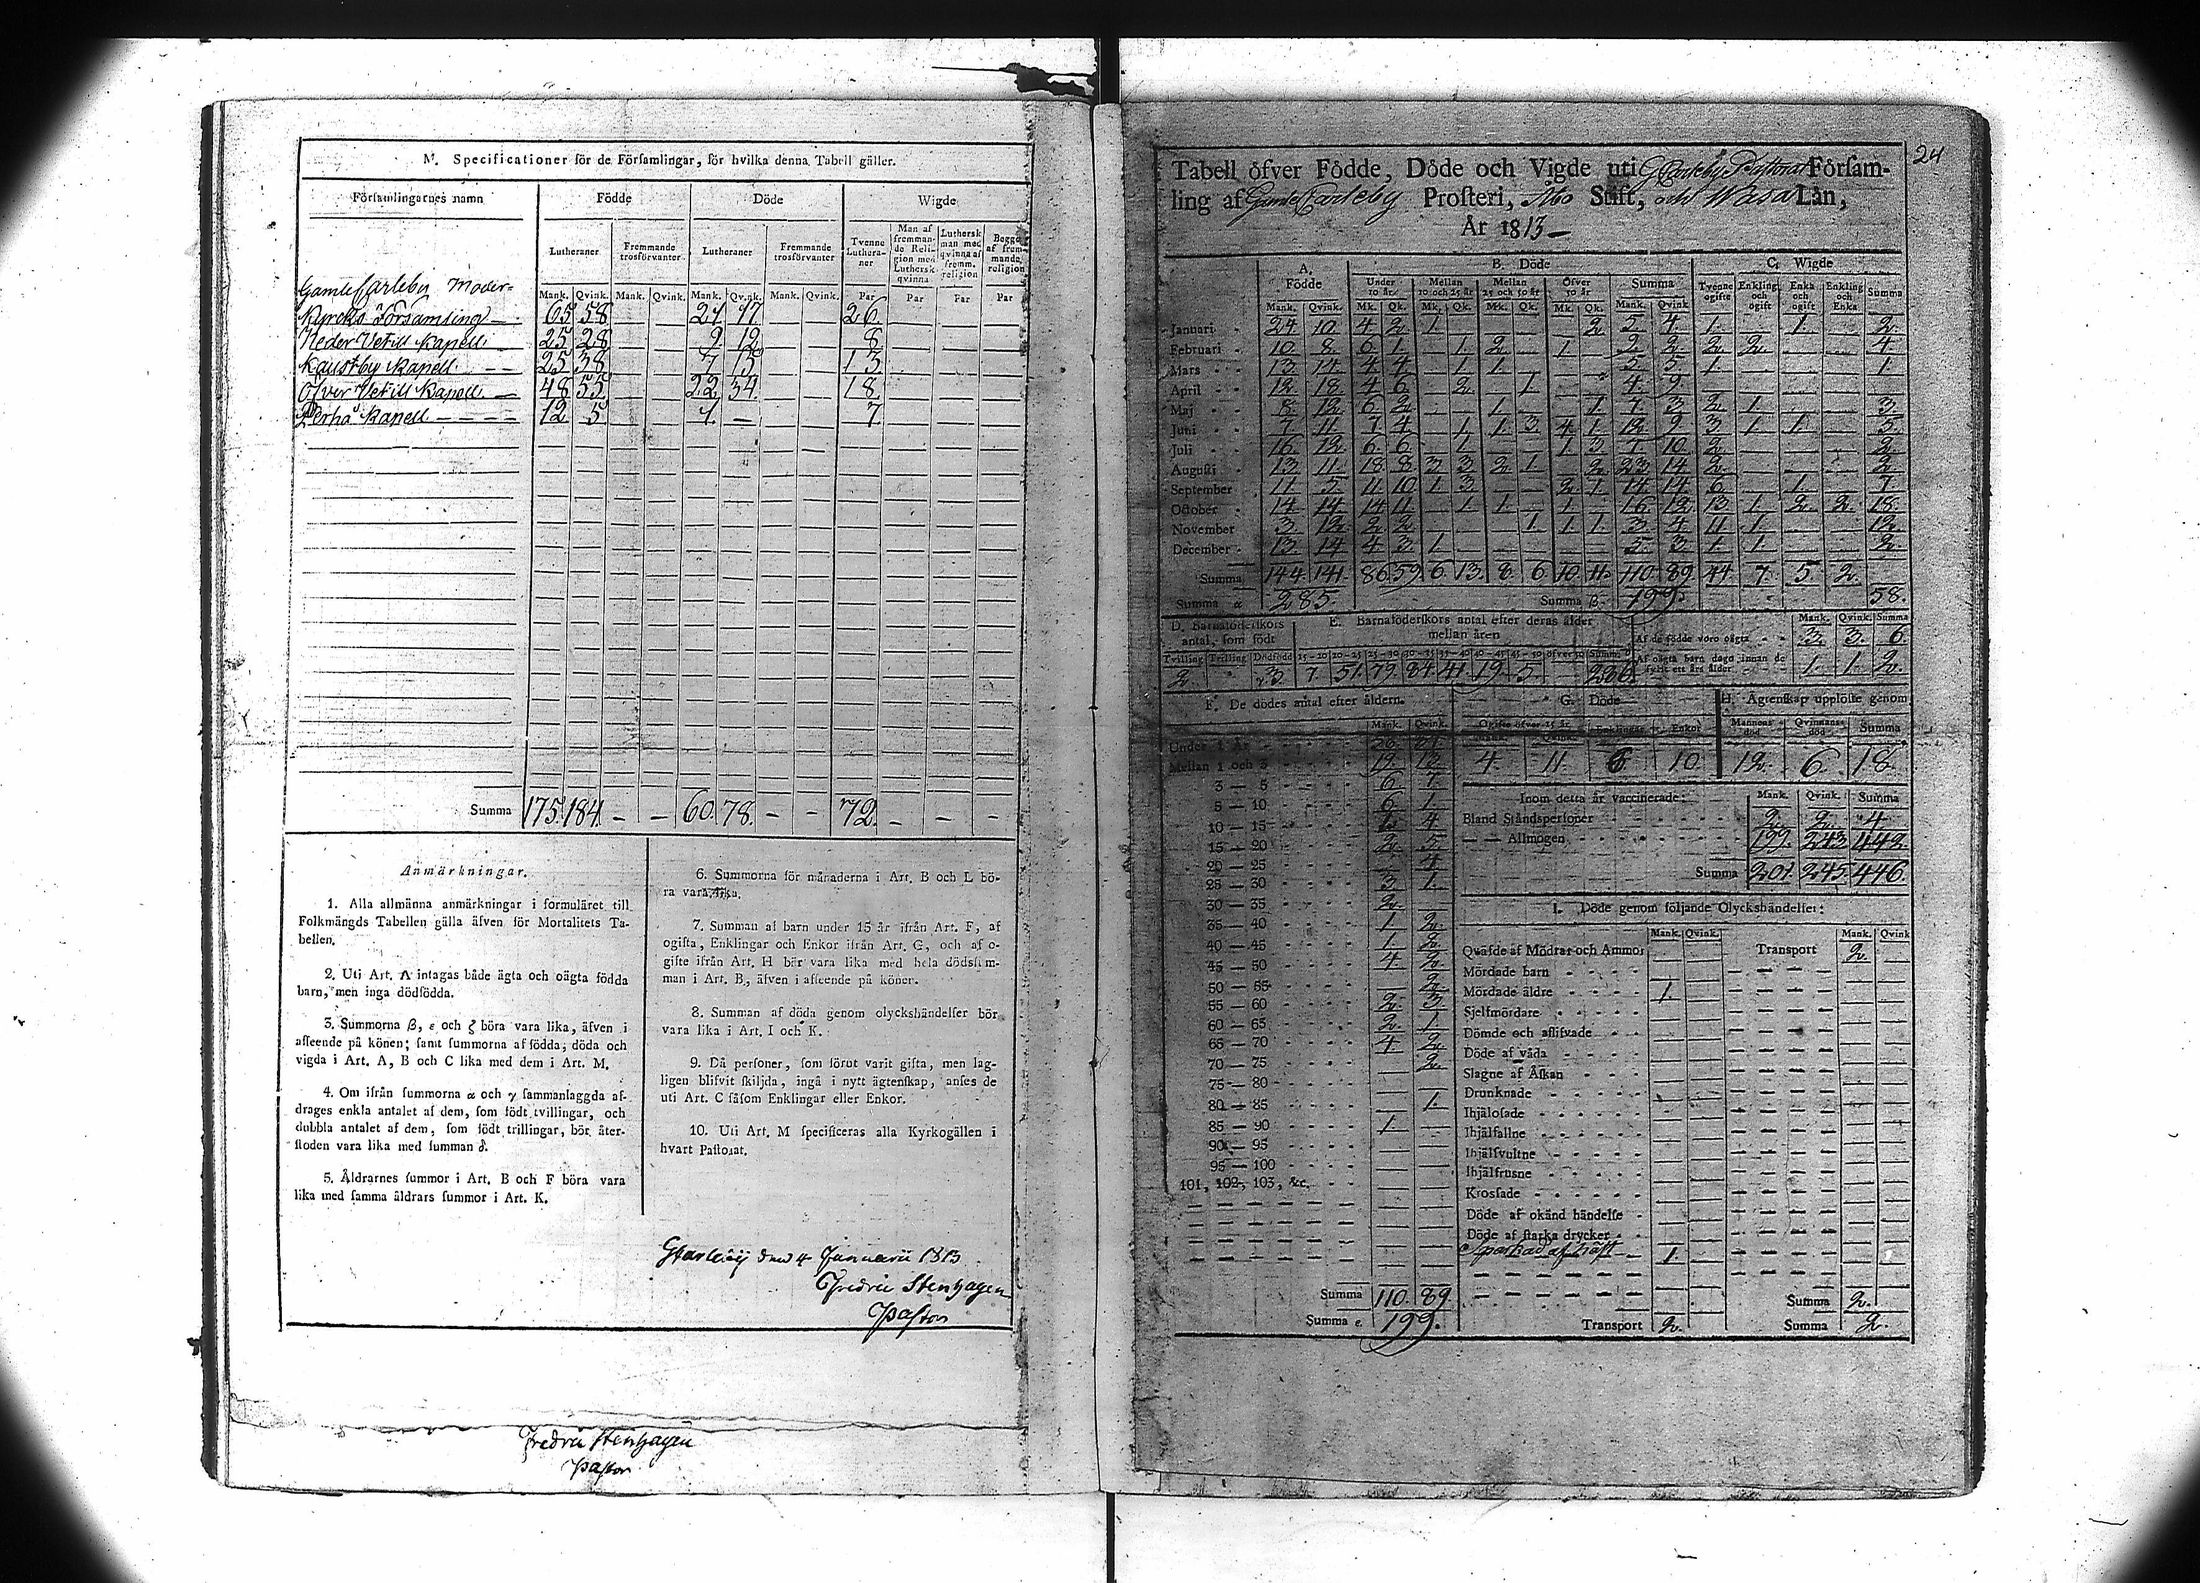 M. Specificationer för de Församlingar, för hvilka denna Tabell gäller.
Församlingarnes namn Födde Döde Wigde
Lutheraner Fremmande trosförvanter Lutheraner Fremmande trosförvanter Tvenne Lutheraner Man af fremmande Religion med Luthersk qvinna Luthersk man med qvinna af fremm. religion Begge af fremmande religion
Mank. Qvink. Mank. Qvink. Mank. Qvink. Mank. Qvink. Par Par Par Par
Gamle Carleby Moder-
Kyrcko Församling 65 58 — — 21 17 — — 26 — — —
Neder Vetill Kapell 25 28 — — 9 12 — — 8 — — —
Kaustby Kapell 25 38 — — 7 15 — — 13 — — —
Öfver Vetill Kapell 48 55 — — 22 34 — — 18 — — —
Perho Kapell 12 5 — — 1 — — — 7 — — —
Summa 175 184 — — 60 78 — — 72 — — —
Anmärkningar.
1. Alla allmänna anmärkningar i formuläret till
Folkmängds Tabellen gälla äfven för Mortalitets Ta-
bellen.
2. Uti Art. A intagas både ägta och oägta födda
barn, men inga dödfödda.
3. Summorna β, ε och ζ böra vara lika, äfven i
afseende på könen; samt summorna af födda, döda och
vigda i Art. A, B och C lika med dem i Art. M.
4. Om ifrån summorna α och γ sammanlaggda af-
drages enkla antalet af dem, som födt tvillingar, och
dubbla antalet af dem, som födt trillingar, bör åter-
stoden vara lika med summan δ.
5. Åldrarnes summor i Art. B och F böra vara
lika med samma åldrars summor i Art. K.
6. Summorna för månaderna i Art. B och L bö-
ra vara lika.
7. Summan af barn under 15 år ifrån Art. F, af
ogifta, Enklingar och Enkor ifrån Art. G, och af o-
gifte ifrån Art. H bär vara lika med hela dödssum-
man i Art. B, äfven i afseende på könen.
8. Summan af döda genom olyckshändelser bör
vara lika i Art. I och K.
9. Då personer, som förut varit gifta, men lag-
ligen blifvit skiljda, ingå i nytt ägtenskap, anses de
uti Art. C såsom Enklingar eller Enkor.
10. Uti Art. M specificeras alla Kyrkogällen i
hvart Pastorat.
GCarleby den 4 Januarii 1813
Fredric Stenhagen
Pastor
Fredric Stenhagen
Pastor
24
Tabell öfver Födde, Döde och Vigde uti GCarleby Pastorat Församling
ling af Gamle Carleby Prosteri, Åbo Stift, och Wasa Län,
År 1813
A. Födde B. Döde C. Wigde
Under 10 år Mellan 10 och 25 år Mellan 25 och 50 år Öfver 50 år Summa Tvenne ogifte Enkling och ogift Enka och ogift Enkling och Enka Summa
Mank. Qvink. Mk. Qk. Mk. Qk. Mk. Qk. Mk. Qk. Mank. Qvink
Januari 24 10 4 2 1 2 5 4 1 1 2
Februari 10 8 6 1 1 2 1
Mars 13 14 4 4 1 1 5 5 1 1
April 12 18 4 6 2 1 4 9
Maj 8 12 6 2 1 1 7 3 2 1 3
Juni 7 11 7 4 1 1 3 4 1 12 9 3 1 1 5
Juli 16 12 6 6 1 1 3 7 10 2 2
Augusti 13 11 18 8 3 3 2 1 2 23 14 2 2
September 11 5 11 10 1 3 2 1 14 14 6 1 7
October 14 14 14 11 1 1 1 16 12 13 1 2 2 18
November 3 12 2 2 1 1 1 3 4 11 1 12
December 13 14 4 3 1 5 3 1 1 2
Summa 144 141 86 59 6 13 8 6 10 11 110 89 44 7 5 2
Summa α 285 Summa β 199 58
D. Barnaföderskors antal, som födt
E. Barnaföderskors antal efter deras ålder mellan åren
Mank. Qvink. Summa
Af de födde voro oägta 3 3 6
Af oägta barn dogo innan de fyllt ett års ålder 1 1 2
Tvilling Trilling Dödfödd 15-20 20-25 25-30 30-35 35-40 40-45 45-50 öfver 50 Summa δ
2 3 7 51 79 84 41 19 5 286
F. De dödes antal efter åldern. G. Döde H. Ägtenskap upplöste genom
Mank. Qvink. Ogifte öfver 15 år Enklingar Enkor Mannens död Qvinnans död Summa
4 11 6 10 12 6 18
Under 1 År
Mellan 1 och 3
3 — 5 6 7
5 — 10 6 1
10 — 15
15 — 20 2 5
20 — 25 4
25 — 30 3 1
30 — 35 2
35 — 40 1 2
40 — 45 1 2
45 — 50 4 2
50 — 55 2
55 — 60 2 3
60 — 65 2 1
65 — 70 4 2
70 — 75 2
75 — 80
80 — 85 1
85 — 90 1
90 — 95
95 — 100
101, 102, 103, &c.
Summa 110 89
Summa ε. 199.
Inom detta år vaccinerade: Mank. Qvink. Summa
Bland Ståndspersoner 2 2 4
— — Allmogen 199 243 442
Summa 201 245 446
I. Döde genom följande Olyckshändelser:
Mank. Qvink. Mank. Qvink
Qväfde af Mödrar och Ammor Transport 2
Mördade barn
Mördade äldre 1
Sjelfmördare
Dömde och aflifvade
Döde af våda
Slagne af Åskan
Drunknade
Ihjälosade
Ihjälfallne
Ihjälsvultne
Ihjälfrusne
Krossade
Döde af okänd händelse
Döde af starka drycker
Sparkad af häst 1
Summa 2
Transport 2 Summa 2